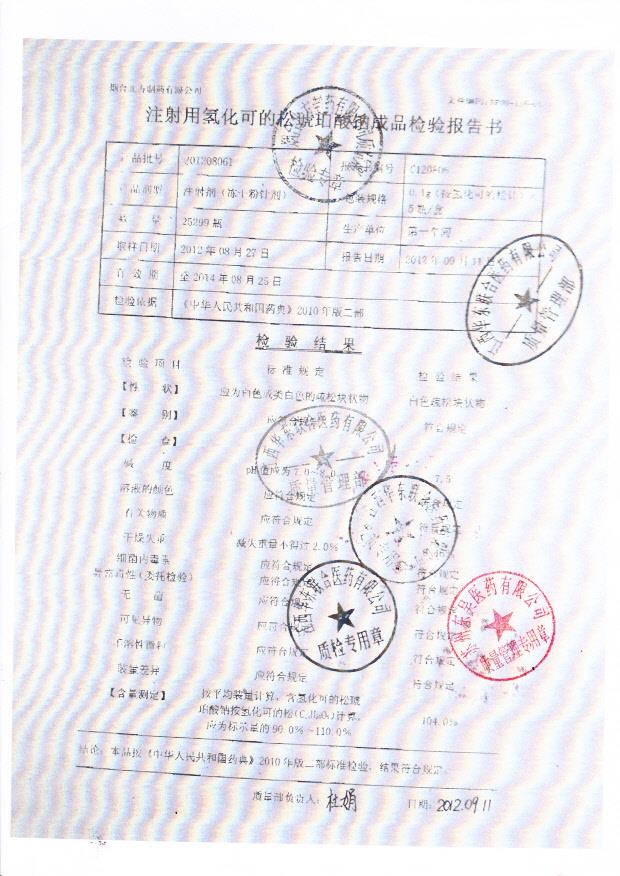 制药有限公司
注射用氢化可的松琥珀酸钠成品检验报告书
产品批号 201208061 报告书编号
产品剂型 注射剂（冻干粉针剂） 包装规格 0.1g（按氢化可的松计）×5瓶/盒
数 量 25299瓶 生产单位 第一车间
取样日期 2012年08月27日 报告日期 2012年09月11日
有效期 至2014年08月25日
检验依据 《中华人民共和国药典》2010年版二部
检验结果
检验项目 标准规定 检验结果
【性 状】 应为白色或类白色的疏松块状物 白色疏松块状物
【鉴 别】 应符合规定 符合规定
【检 查】
碱 度 pH值应为7.0~8.0 7.5
溶液的颜色 应符合规定 符合规定
有关物质 应符合规定 符合规定
干燥失重 减失重量不得过2.0%
细菌内毒素 应符合规定 符合规定
异常毒性（委托检验） 应符合规定 符合规定
无 菌 应符合规定 符合规定
可见异物 应符合规定 符合规定
不溶性微粒 应符合规定 符合规定
装量差异 应符合规定 符合规定
【含量测定】 按平均装量计算，含氢化可的松琥
珀酸钠按氢化可的松(C₂₁H₃₀O₅)计算，
应为标示量的90.0%~110.0% 104.0%
结论：本品按《中华人民共和国药典》2010年版二部标准检验，结果符合规定。
质量部负责人：杜娟 日期：2012.09.11
检验专用章
江西华东联合医药有限公司
质量管理部
江西华东联合医药有限公司
质量管理部
江西华东联合医药有限公司
质检专用章
医药有限公司
质量管理专用章